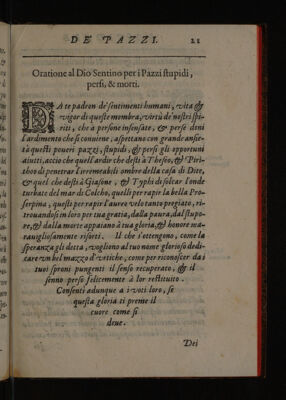 DE' PAZZI. 22
Oratione al Dio Sentino per i Pazzi stupidi,
persi, & morti.
DA te padron de' sentimenti humani, vita &
vigor di queste membra, virtù de' nostri spi-
riti, che à persone insensate, & perse doni
l'ardimento che si conuiene, aspettano con grande ansie-
tà questi poueri pazzi, stupidi, & persi gli opportuni
aiuti, accio che quell'ardir che desti à Theseo, & Piri-
thoo di penetrar l'irremeabili ombre della casa di Dite,
& quel che desti à Giasone, & Typhi di solcar l'onde
turbate del mar di Colcho, quelli per rapir la bella Pro-
serpina, questi per rapir l'aureo velo tanto pregiato, ri-
trouandosi in loro per tua gratia, dalla paura, dal stupo-
re, & dalla morte appaiano à tua gloria, & honore ma-
rauigliosamente risorti. Il che s'ottengono, come la
speranza gli detta, vogliono al tuo nome glorioso dedi-
care vn bel mazzo d'vrtiche, come per riconoscer da i
tuoi sproni pungenti il senso recuperato, & il
senno perso felicemente à lor restituito.
Consenti adunque a i voti loro, se
questa gloria ti preme il
cuore come si
deue.
Dei